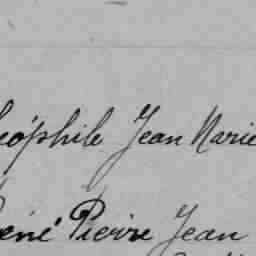 éophile Jean Marie
ené Pierre Jean